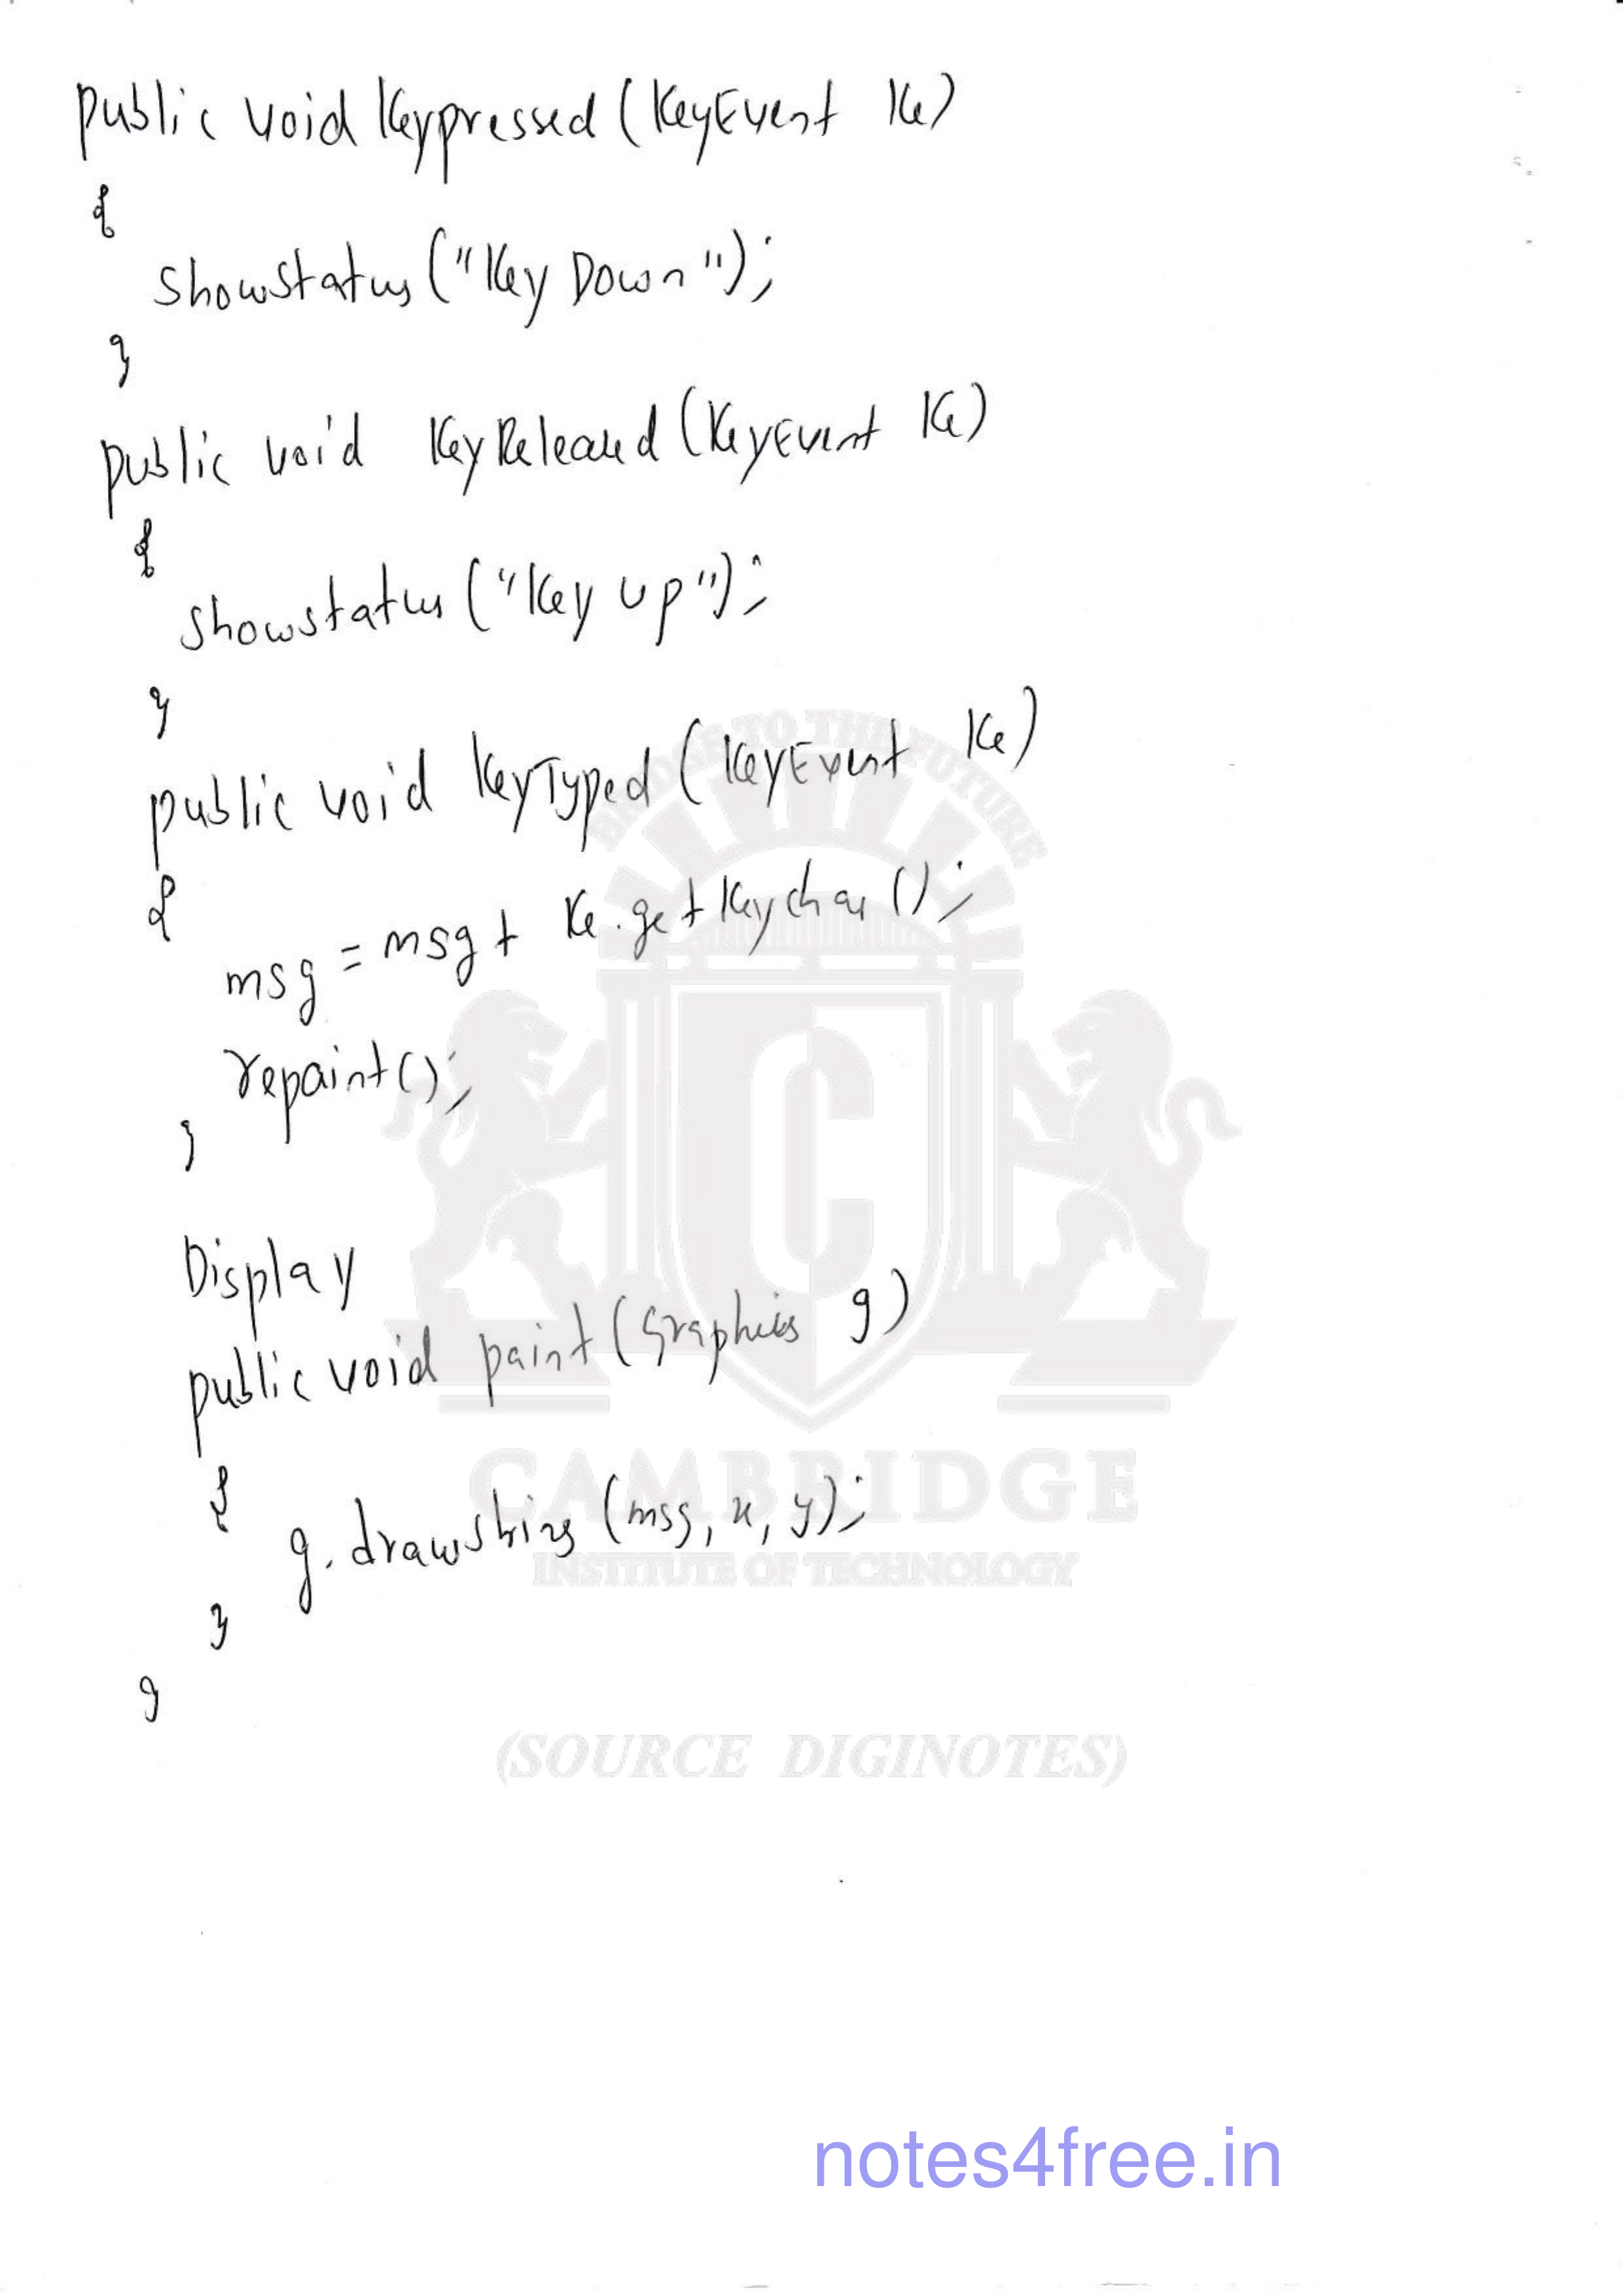 public void Keypressed (KeyEvent Ke)
{
showStatus ("Key Down");
}
public void KeyReleased (KeyEvent Ke)
{
showstatus ("Key up");
}
public void KeyTyped (KeyEvent Ke)
{
msg = msg + Ke.getKeychar();
repaint();
}
Display
public void paint (Graphics g)
{
g.drawstring (msg, x, y);
}
}
BRIDGE TO THE FUTURE
C
CAMBRIDGE
INSTITUTE OF TECHNOLOGY
(SOURCE DIGINOTES)
notes4free.in